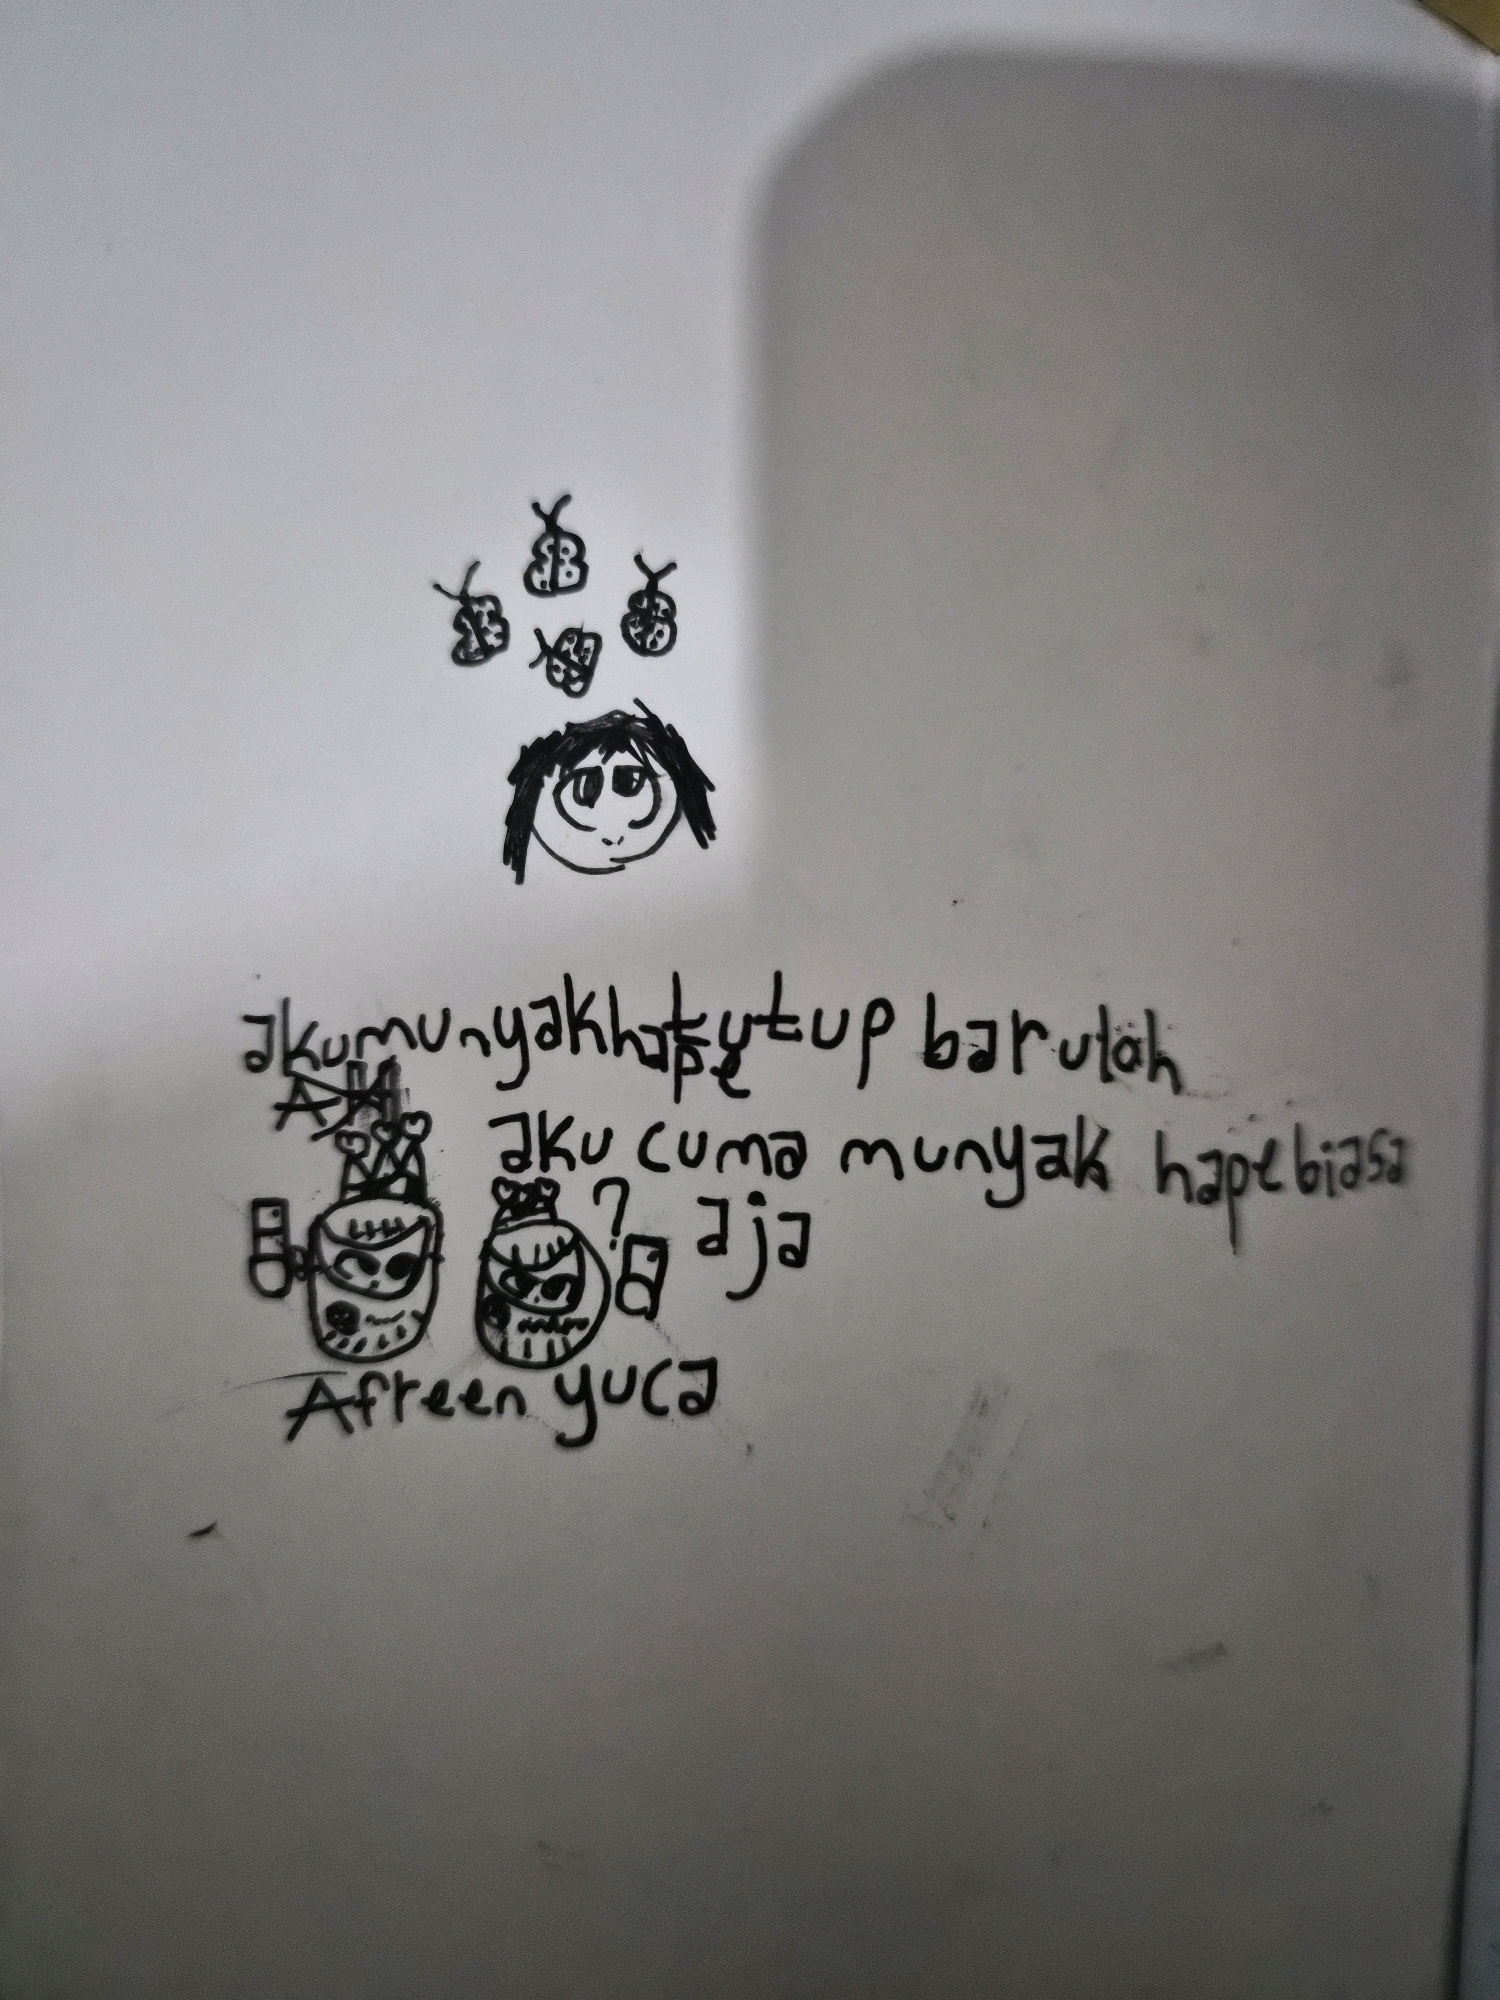 aku munyak hape tutup barulah
aku cuma munyak hape biasa
?
aja
Afreen yuca